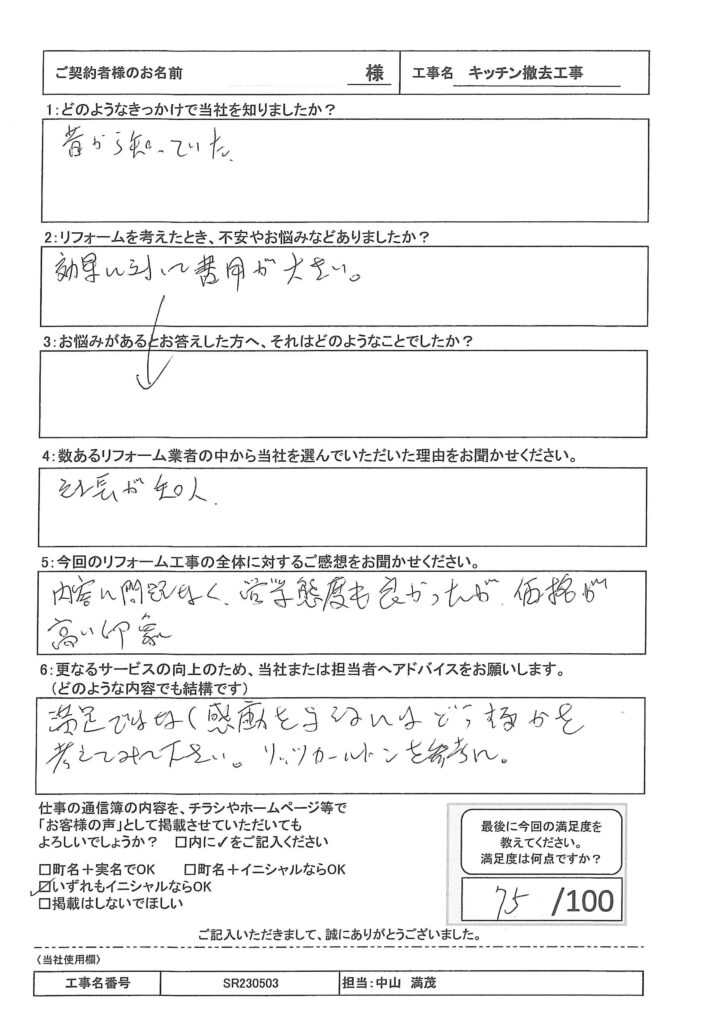 ご契約者様のお名前 様 工事名 キッチン撤去工事
1:どのようなきっかけで当社を知りましたか？
昔から知っていた.
2:リフォームを考えたとき、不安やお悩みなどありましたか？
効果に対して費用が大きい。
3:お悩みがあるとお答えした方へ、それはどのようなことでしたか？
4:数あるリフォーム業者の中から当社を選んでいただいた理由をお聞かせください。
社長が知人.
5:今回のリフォーム工事の全体に対するご感想をお聞かせください。
内容に問題なく、営業態度も良かったが、価格が
高い印象
6:更なるサービスの向上のため、当社または担当者へアドバイスをお願いします。
(どのような内容でも結構です)
満足ではなく感動を与えるにはどうするかを
考えてみて下さい。リッツカールトンを参考に。
仕事の通信簿の内容を、チラシやホームページ等で
「お客様の声」として掲載させていただいても
よろしいでしょうか？ □内に✓をご記入ください
□町名＋実名でOK □町名＋イニシャルならOK
☑いずれもイニシャルならOK
□掲載はしないでほしい
最後に今回の満足度を
教えてください。
満足度は何点ですか？
75 /100
ご記入いただきまして、誠にありがとうございました。
〈当社使用欄〉
工事名番号 SR230503 担当:中山 満茂